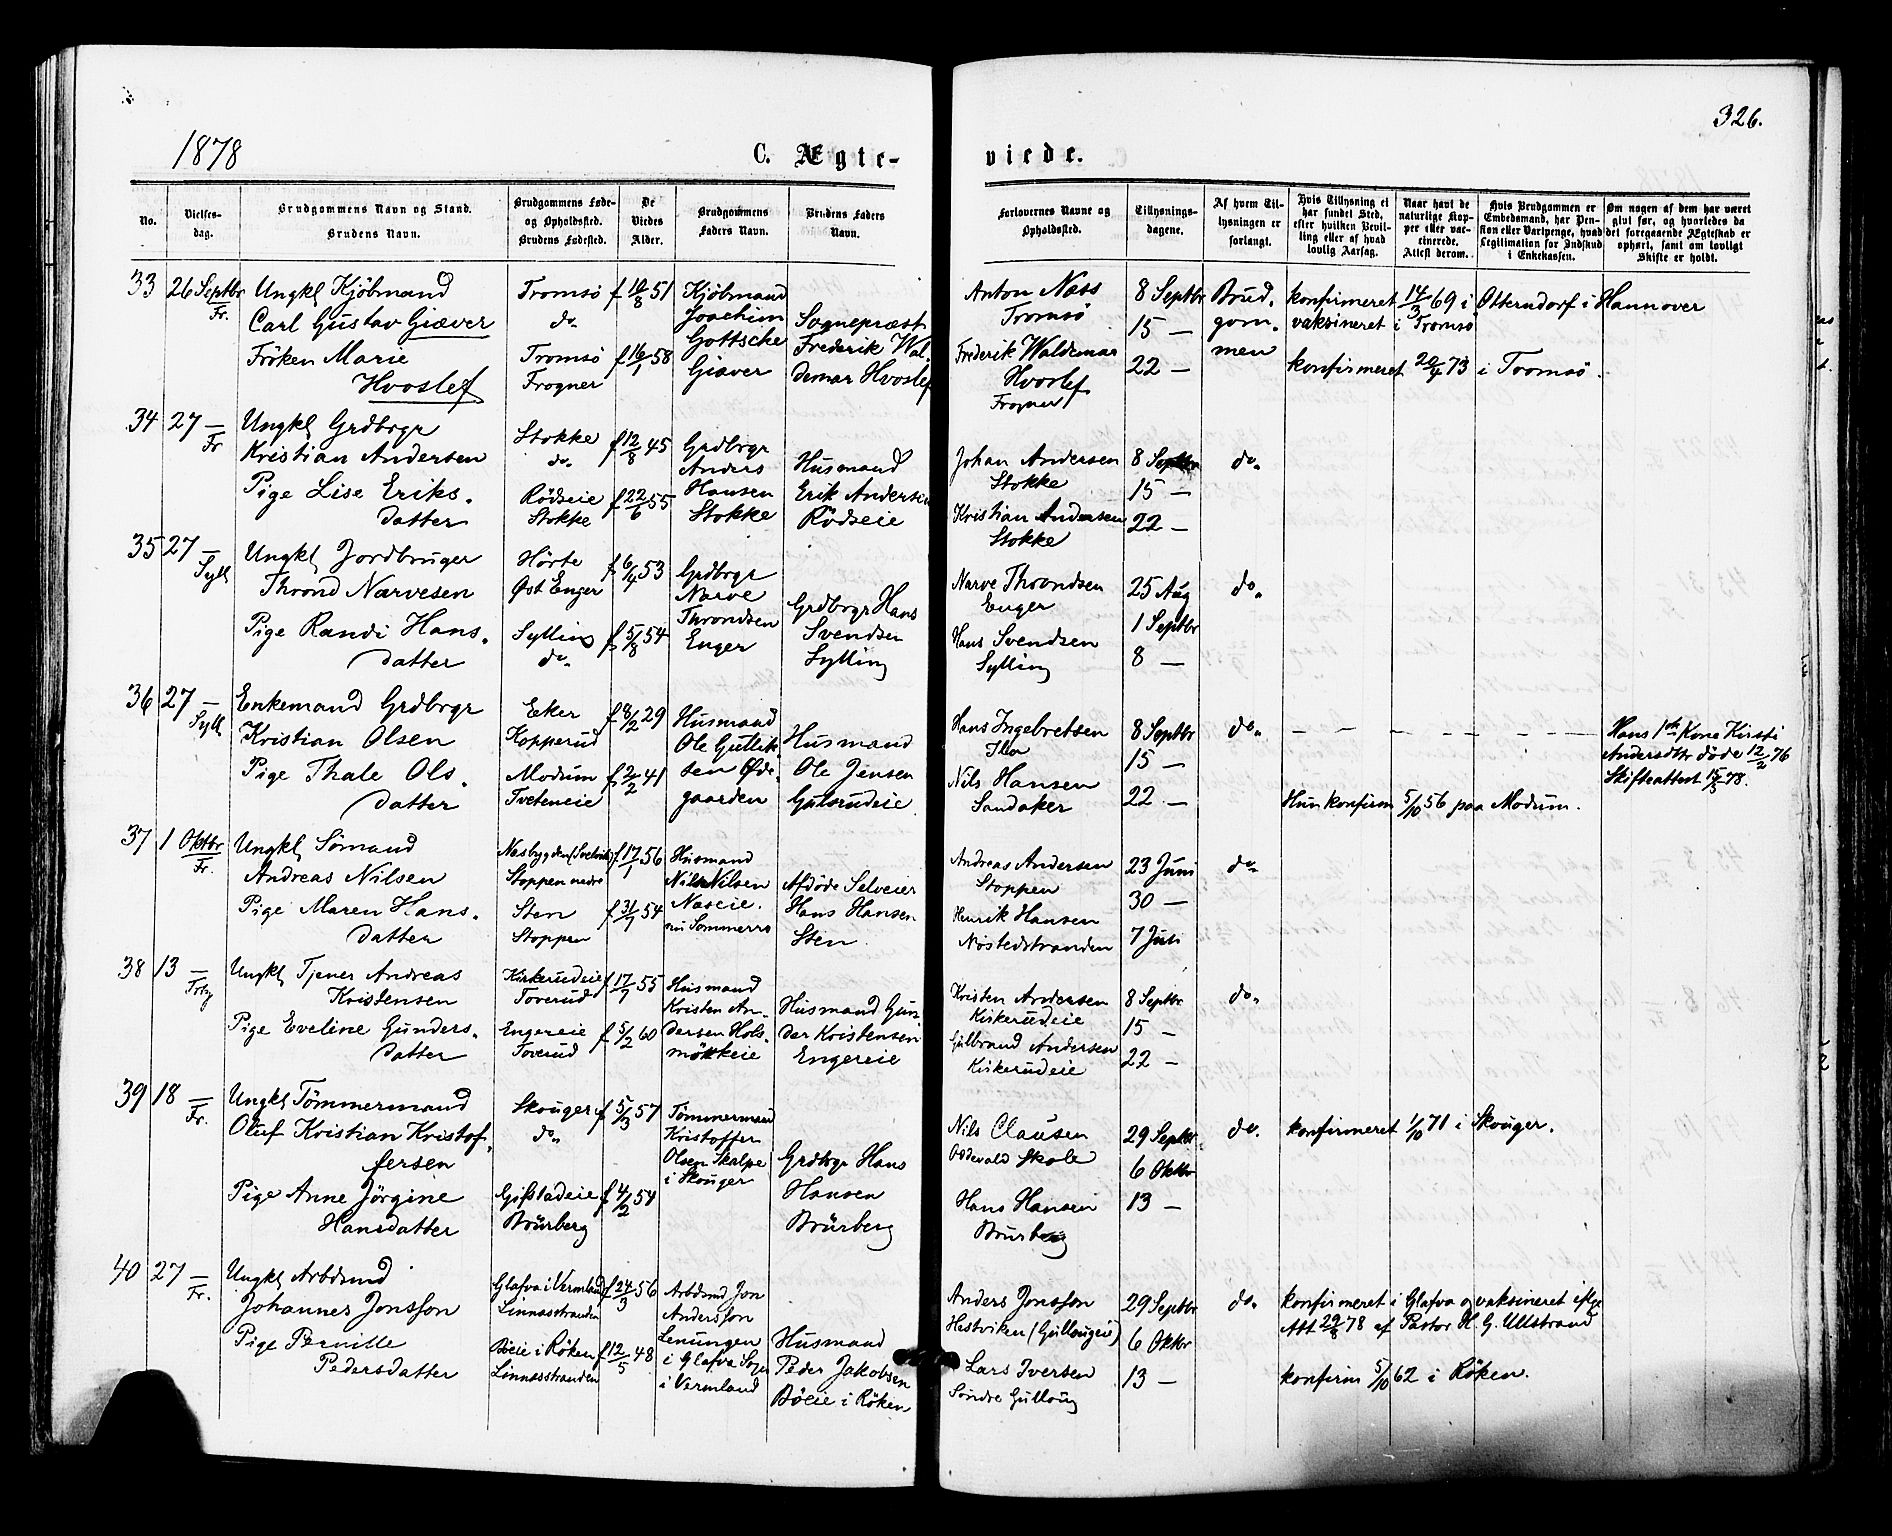 1878
C. Ægte-
viede.
326.
No.
Vielses-
dag.
Brudgommens Navn og Stand.
Brudens Navn.
Brudgommens Føde-
og Opholdssted.
Brudens Fødested.
De
Viedes
Alder.
Brudgommens
Faders Navn.
Brudens Faders
Navn.
Forlovernes Navne og
Opholdssted.
Tillysnings-
dagene.
Af hvem Til-
lysningen er
forlangt.
Hvis Tillysning ei
har fundet Sted,
efter hvilken Bevil-
ling eller af hvad
lovlig Aarsag.
Naar havt de
naturlige Kop-
per eller vac-
cinerede.
Attest derom.
Hvis Brudgommen er
Embedsmand, har Pen-
sion eller Vartpenge, hvad
Legitimation for Indskud
i Enkekassen.
Om nogen af dem har været
givt før, og hvorledes da
det foregaaende Ægteskab er
ophørt, samt om lovligt
Skifte er holdt.
33
26 Septbr
Fr.
Ungkl Kjöbmand
Carl Gustav Giæver
Fröken Marie
Hvoslef
Tromsö
do.
Tromsö
Frogner
f 10/8 51
f 16/1 58
Kjöbmand
Joachim
Gottsche
Giæver
Sognepræst
Frederik Wal-
demar Hvoslef
Anton Næss
Tromsö
Frederik Waldemar
Hvoslef
Frogner
8 Septbr
15 —
22 —
Brud-
gom-
men
konfirmeret 14/3 69 i Otterndorf i Hannover
vaksineret i Tromsö
konfirmeret 20/4 73 i Tromsö.
34
27 —
Fr
Ungkl Grdbrgr
Kristian Andersen
Pige Lise Eriks-
datter
Stokke
do.
Rödseie
Stokke
f 12/8 45
f 22/6 55
Grdbrgr
Anders
Hansen
Stokke
Husmand
Erik Andersen
Rödseie
Johan Andersen
Stokke
Kristian Andersen
Stokke
8 Septbr
15 —
22 —
do.
35
27 —
Syll
Ungkl Jordbruger
Thrond Narvesen
Pige Randi Hans-
datter
Hörte
Øst Enger
Sylling
do.
f 6/4 53
f 5/8 54
Grdbrgr
Narve
Throndsen
Enger
Grdbrgr Hans
Svendsen
Sylling
Narve Throndsen
Enger
Hans Svendsen
Sylling
25 Aug
1 Septbr
8 —
do.
36
27 —
Syll
Enkemand Grdbrgr
Kristian Olsen
Pige Thale Ols-
datter
Eker
Kopperud
Modum
Tveteneie
f 8/2 29
f 2/2 41
Husmand
Ole Gullik-
sen Øde-
gaarden
Husmand
Ole Jensen
Gulsrudeie
Hans Ingebretsen
Nils Hansen
Sandaker
8 Septbr
15 —
22 —
do.
Hun konfirm 5/10 56 paa Modum.
Hans 1ste Kone Kirsti
Andersdtr döde 12/2 76
Skifteattest 15/5 78.
37
1 Oktbr
Fr.
Ungkl Sömand
Andreas Nilsen
Pige Maren Hans-
datter
Næsbygden (Svelvik)
Stoppen nedre
Sten
Stoppen
f 17/1 56
f 31/7 54
Husmand
Nils Nilsen
Næseie.
Afdöde Selveier
Hans Hansen
Sten
Andreas Andersen
Stoppen
Henrik Hansen
Nöstedstranden
23 Juni
30 —
7 Juli
do.
38
13 —
Ungkl Tjener Andreas
Kristensen
Pige Eveline Gunders-
datter
Kirkerudeie
Toverud
Engereie
Toverud
f 17/7 55
f 5/2 60
Husmand
Kristen An-
dersen Hols-
mökkeie
Husmand Gun-
der Kristensen
Engereie
Kristen Andersen
Kirkerudeie
Gulbrand Andersen
Kirkerudeie
8 Septbr
15 —
22 —
do.
39
18 —
Fr.
Ungkl Tömmermand
Oluf Kristian Kristof-
fersen
Pige Anne Jörgine
Hansdatter
Skouger
do.
Gifstadeie
Brürberg
f 5/3 57
f 4/2 54
Tömmermand
Kristoffer
Olsen Skalpe
i Skouger
Grdbrgr Hans
Hansen
Brürberg
Nils Clausen
Oddevald Skole
Hans Hansen
Brurberg
29 Septbr
6 Oktbr
13 —
do.
konfirmeret 1/10 71 i Skouger.
40
27 —
Fr.
Ungkl Arbdsmd
Johannes Jonsson
Pige Pernille
Pedersdatter
Glafva i Vermland
Linnæsstranden
Böeie i Röken
Linnæsstranden
f 24/3 56
f 12/5 48
Arbdsmd Jon
Andersson
Lenungen
i Glafva Sogn
i Vermland
Husmand
Peder Jakobsen
Böeie i Röken
Anders Jonsson
Hestviken (Gullougeie)
Lars Iversen
Söndre Gulloug
29 Septbr
6 Oktbr
13 —
do.
konfirmeret i Glafva og vaksineret iflge
Att 29/8 78 af Pastor H. G. Ullstrand
konfirm 5/10 62 i Röken.